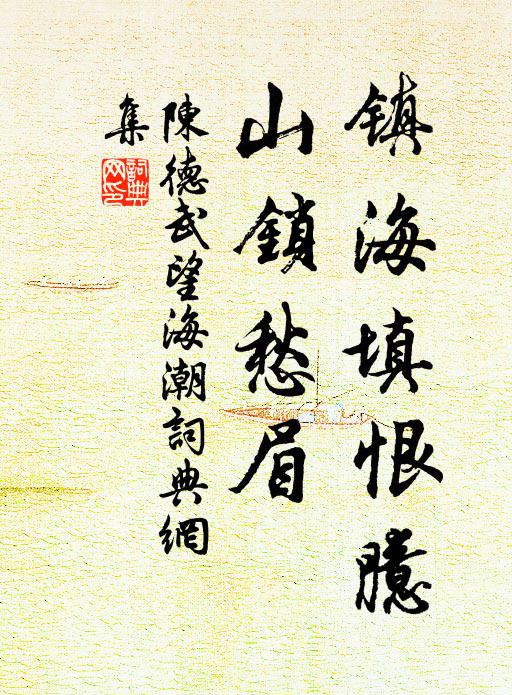 镇海填恨臆
山鎖愁眉
陳德武望海潮詞典網
集
詞典網印